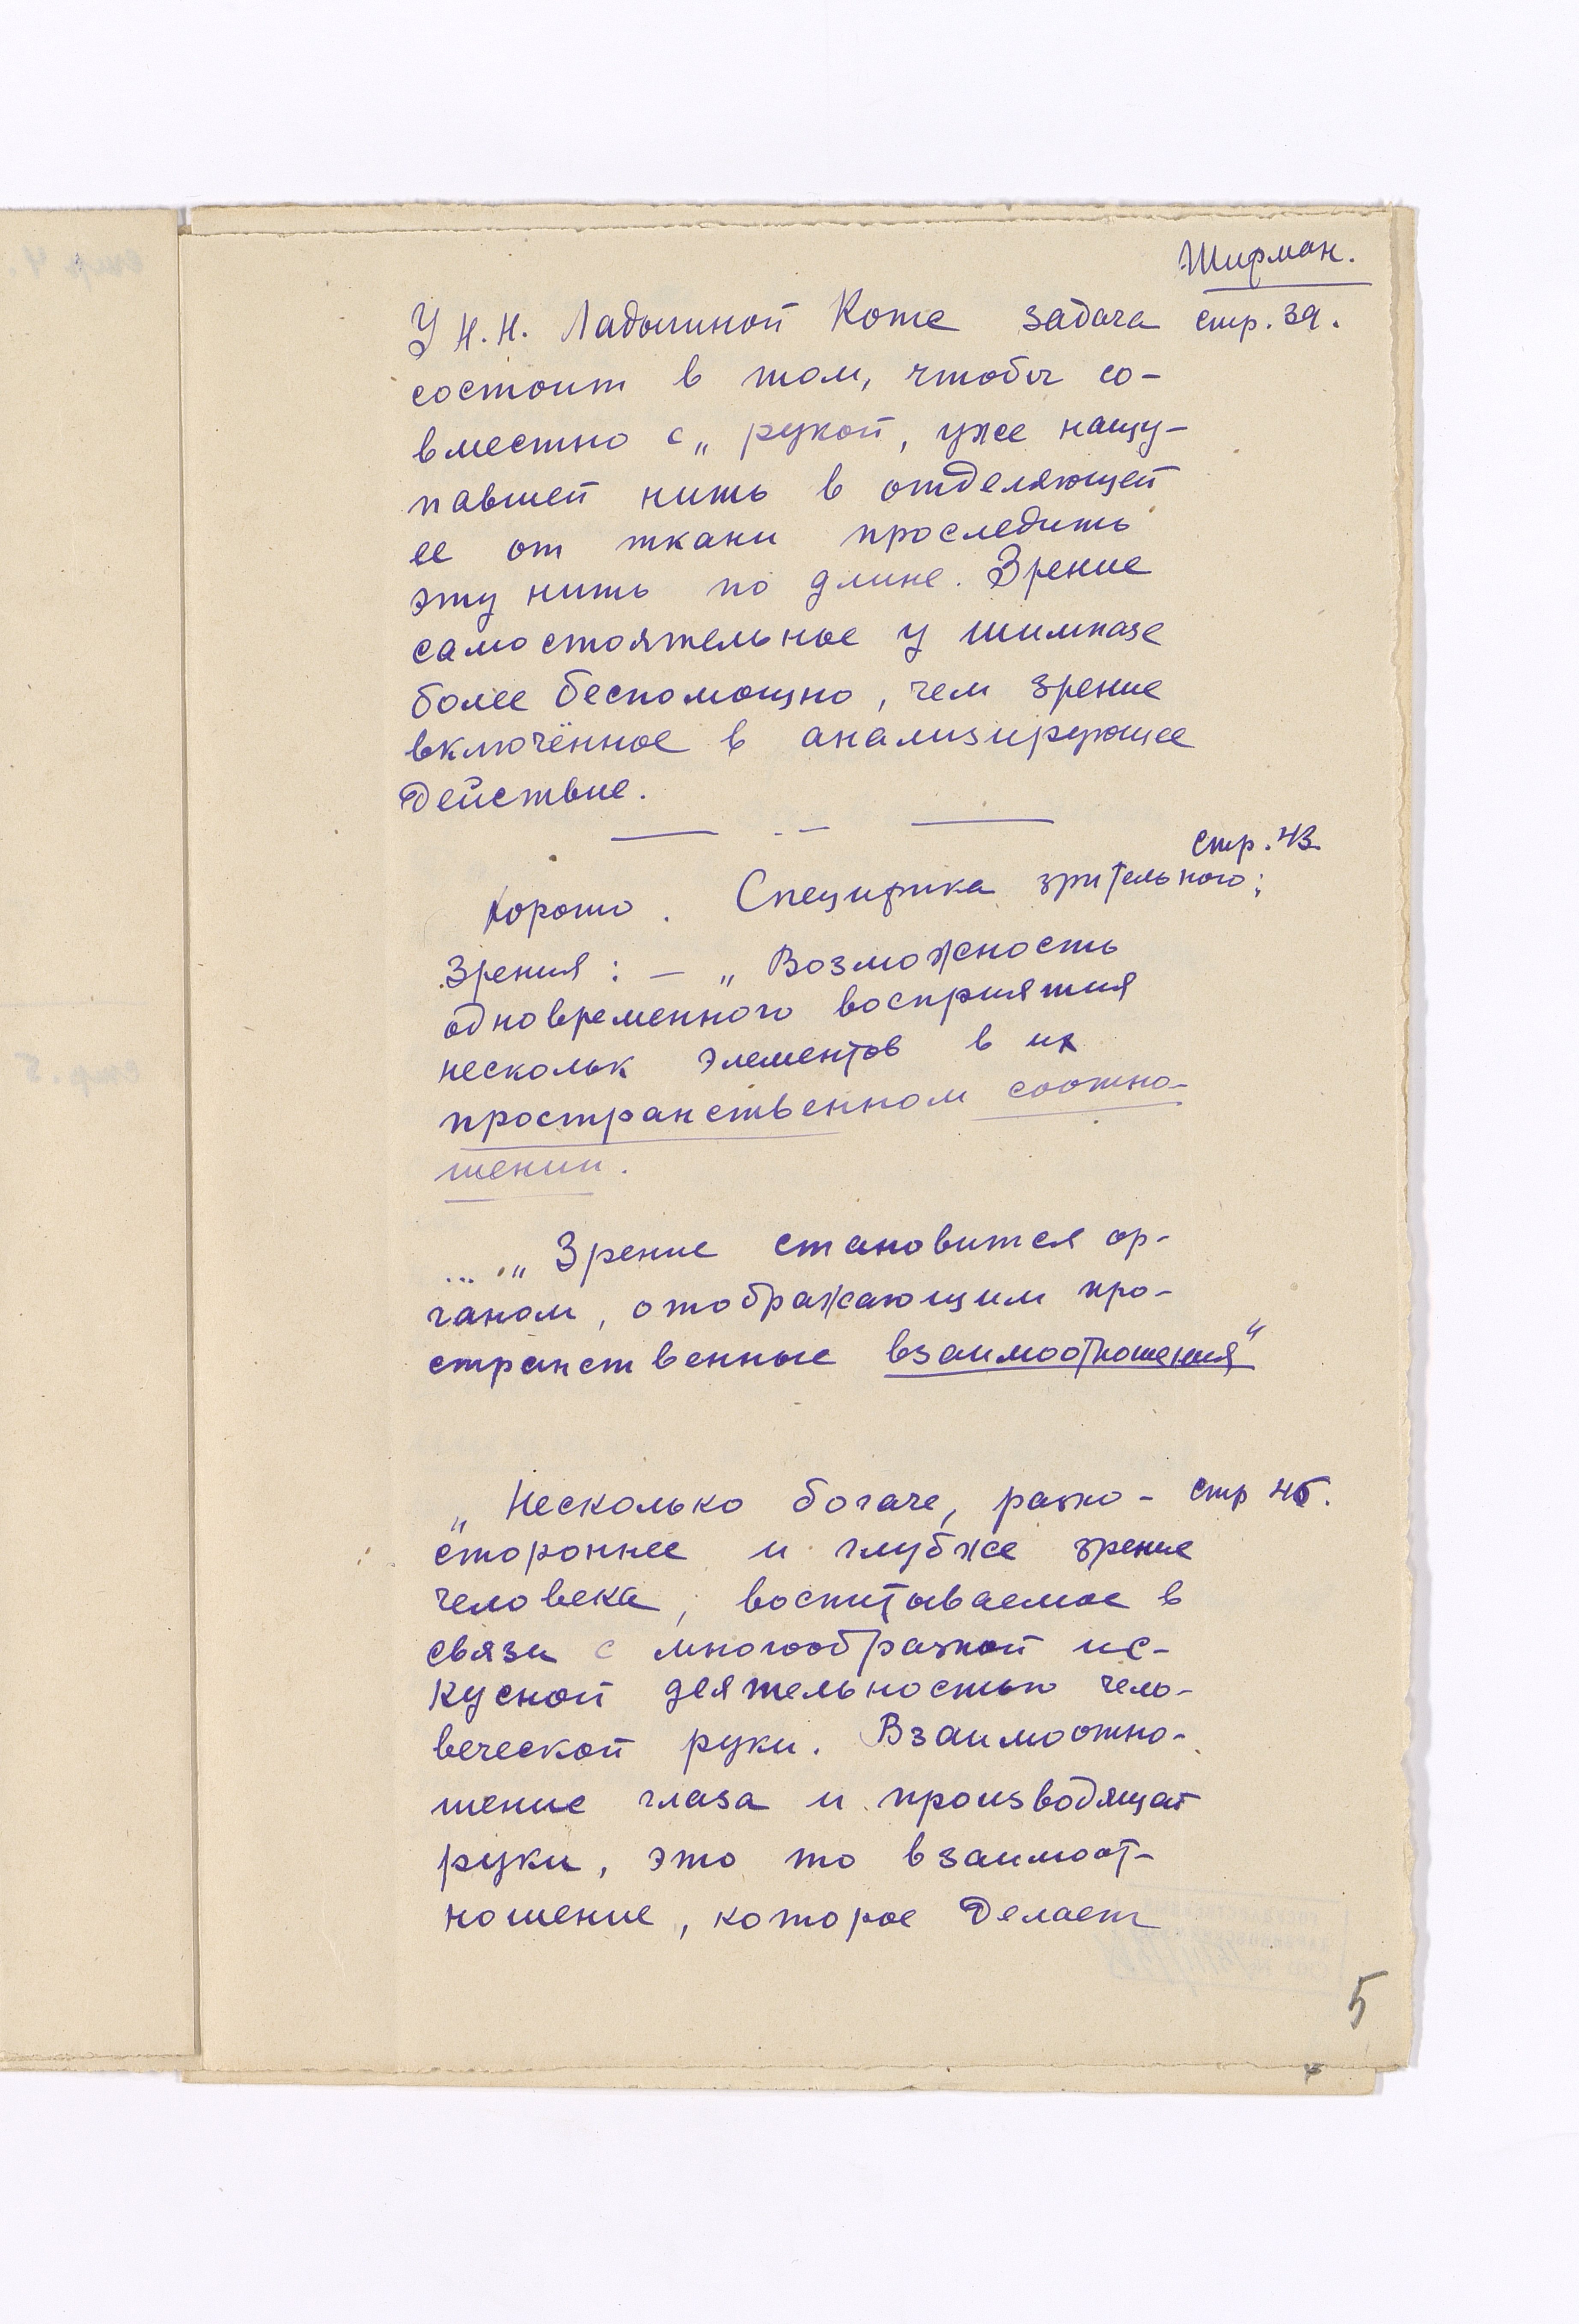 Шифман.
У Н.Н. Ладыгиной Коте задача стр. 39.
состоит в том, чтобы со-
вместно с „ рукой, уже нащу-
павшей нить в отделяющей
ее от ткани проследить
эту нить по длине. Зрение
самостоятельное у шимпазе
более беспомощно, чем зрение
включённое в анализирующее
действие.
стр. 43
Хорошо. Специфика зрительного;
Зрения : — „ Возможность
одновременного восприятия
несколък элементов в их
пространственном соотно-
шении.
... „ Зрение становится ор-
ганом, отображающим про-
странственные взаимоотношения“
„ Несколько богаче, разно- стр 45.
стороннее и глубже зрение
человека, воспитываемое в
связи с многообразной ис-
кусной деятельностью чело-
веческой руки. Взаимоотно-
шение глаза и производящей
руки, это то взаимоот-
ношение, которое делает
5